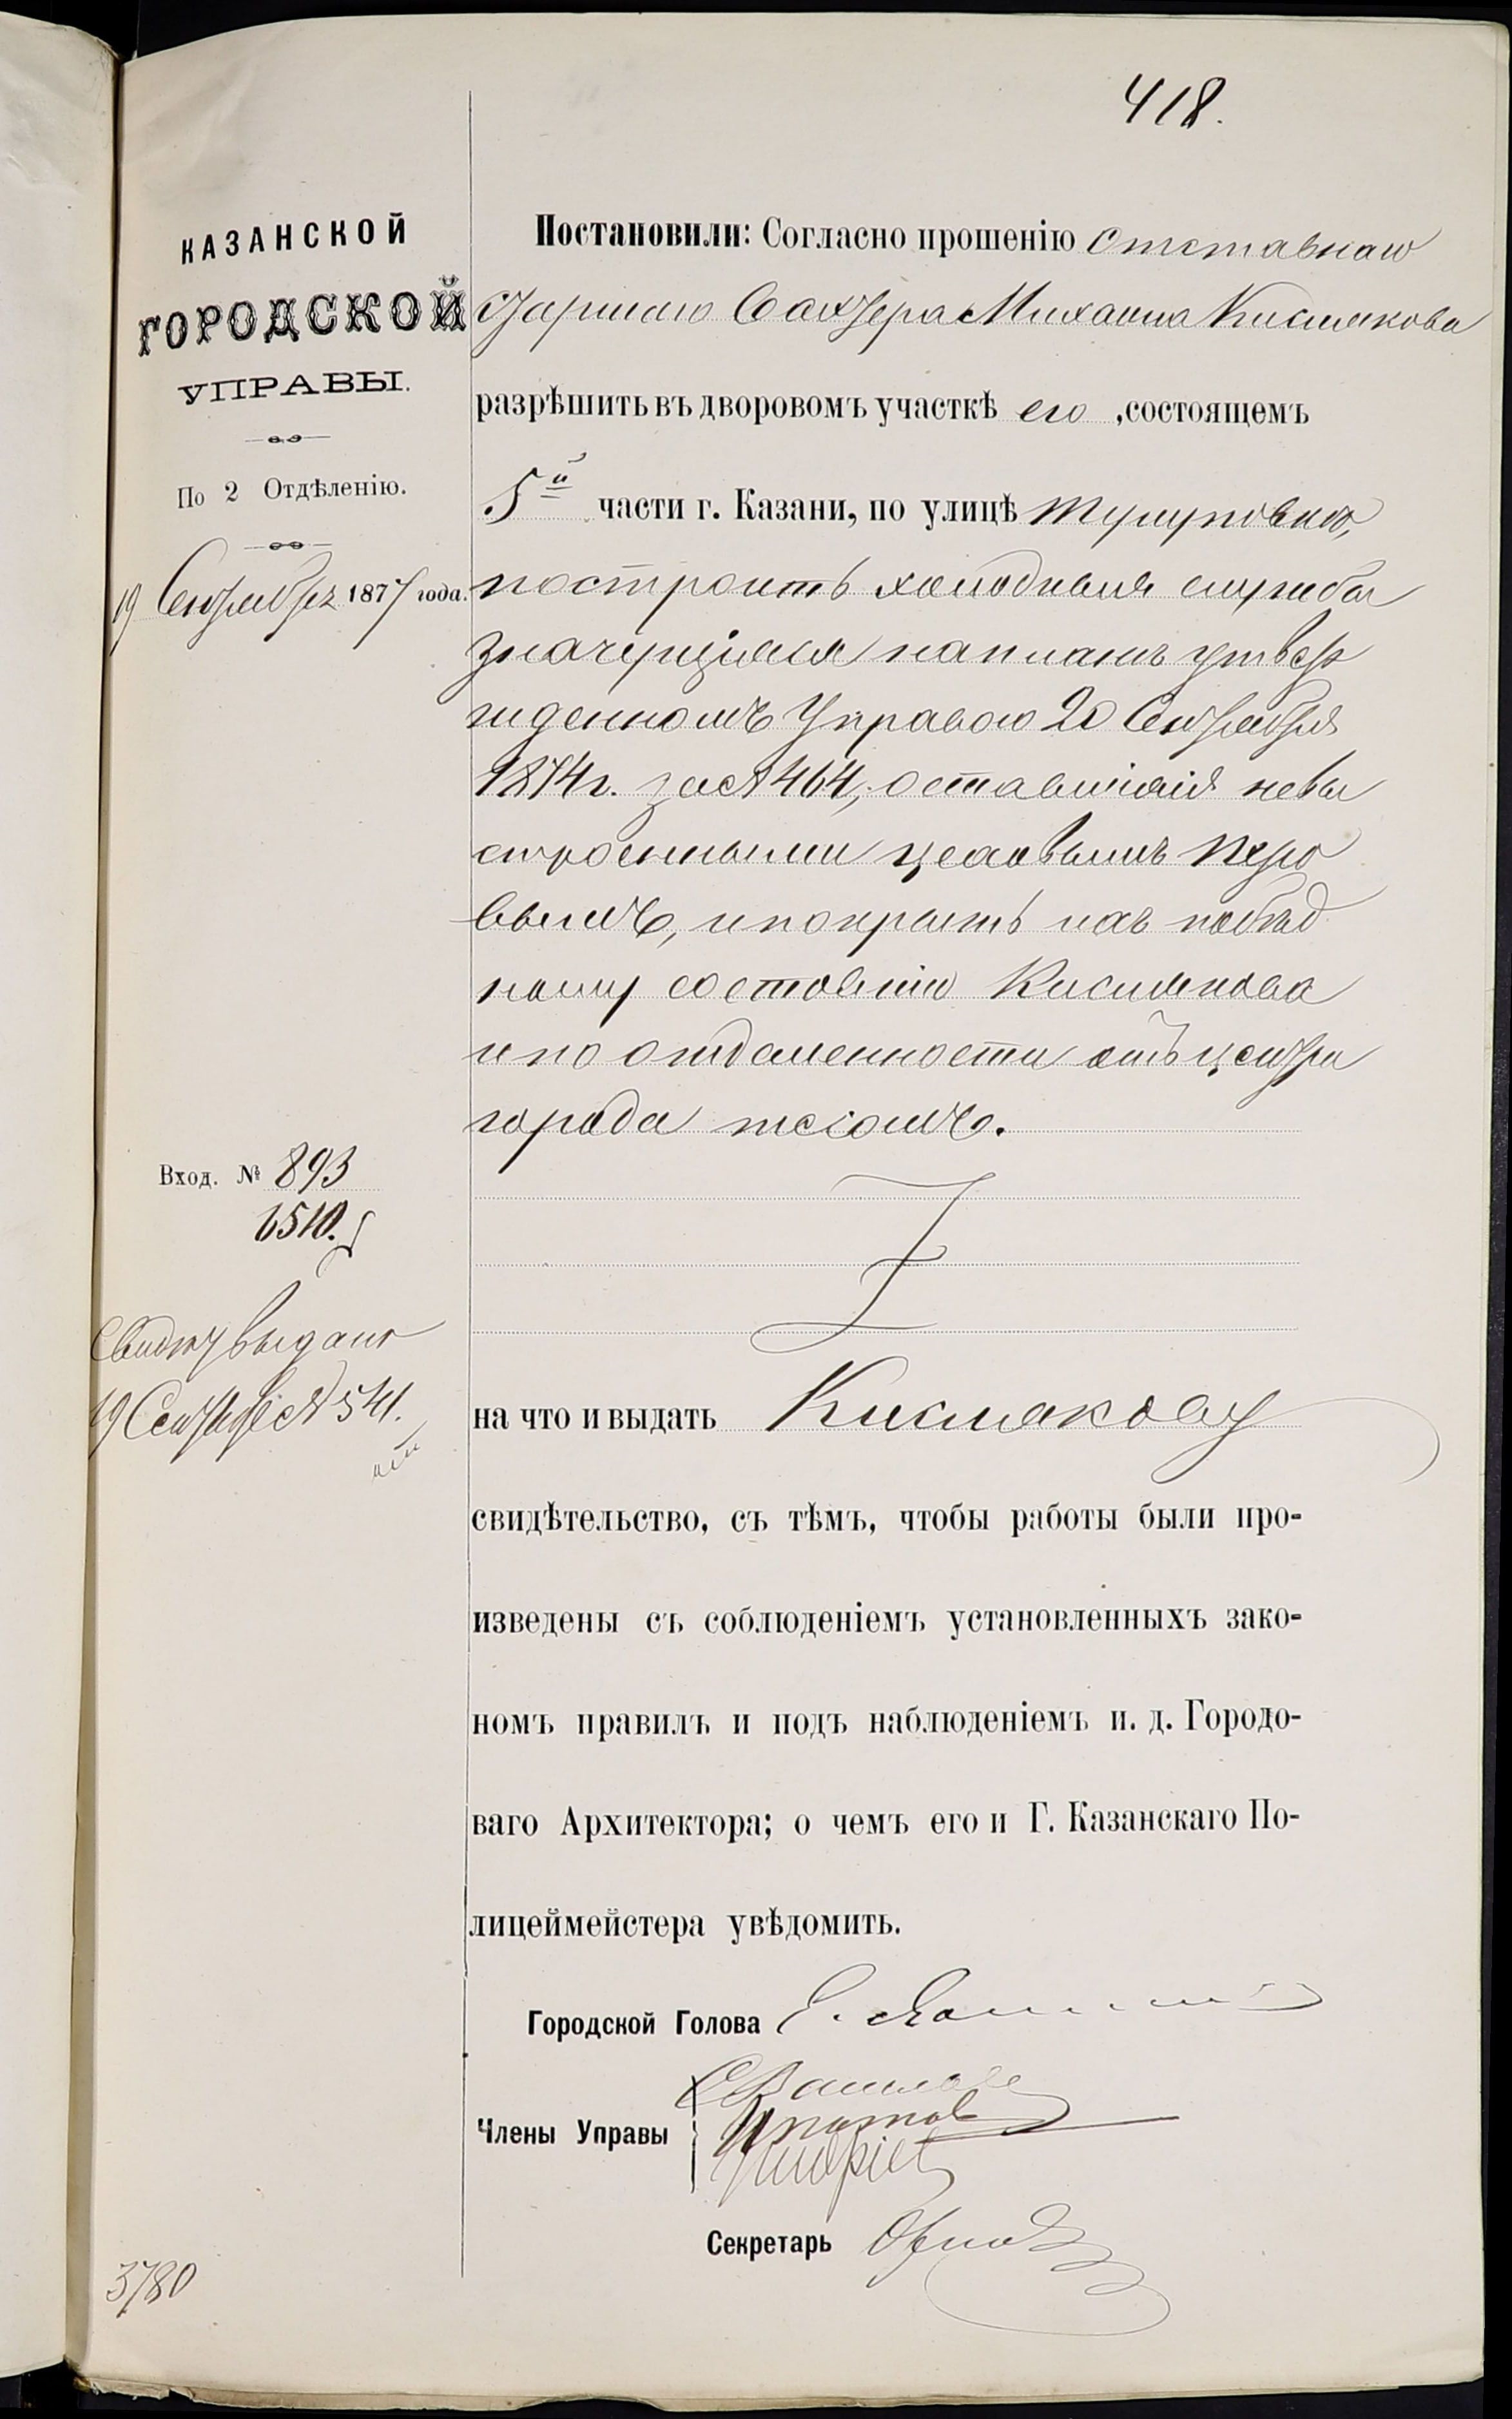 418.
КАЗАНСКОЙ
ГОРОДСКОЙ
УПРАВЫ.
По 2 Отдѣленію.
19 Сентября 1877 года.
Вход. № 893
6510.
Свидет выдано
19 Сентября № 541.
3780
Постановили: Согласно прошенію отставнаго
Михаила Кислякова
разрѣшить въ дворовомъ участкѣ его, состоящемъ
5й части г. Казани, по улицѣ
построить холодныя службы
значущіяся на планѣ утвер
жденномъ Управою 20 Сентября
1874 г. за № 464, оставшіяся невы
строенными
вымъ, и покрыть ихъ по бѣд
ному состоянію Кислякова
и по отдаленности отъ центра
города тесомъ.
на что и выдать Кислякову
свидѣтельство, съ тѣмъ, чтобы работы были про-
изведены съ соблюденіемъ установленныхъ зако-
номъ правилъ и подъ наблюденіемъ и. д. Городо-
ваго Архитектора; о чемъ его и Г. Казанскаго По-
лицеймейстера увѣдомить.
Городской Голова
Члены Управы
Секретарь